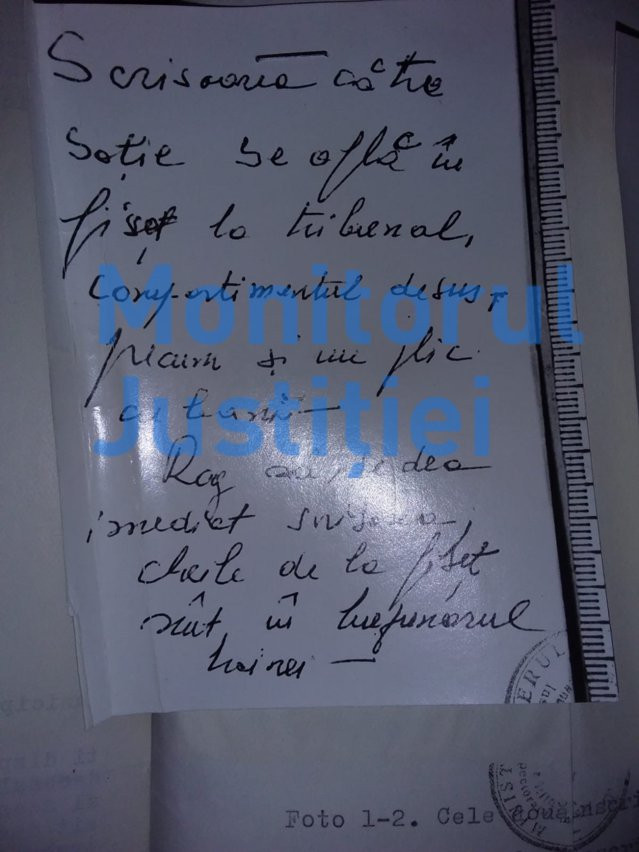 Scrisoarea către
soție se află în
fișet la tribunal,
compartimentul de sus,
precum și un plic
cu bani —
Rog a i se dea
imediat scrisoarea,
cheile de la fișet
sînt în buzunarul
hainei —
Monitorul
Justiției
Foto 1-2. Cele două